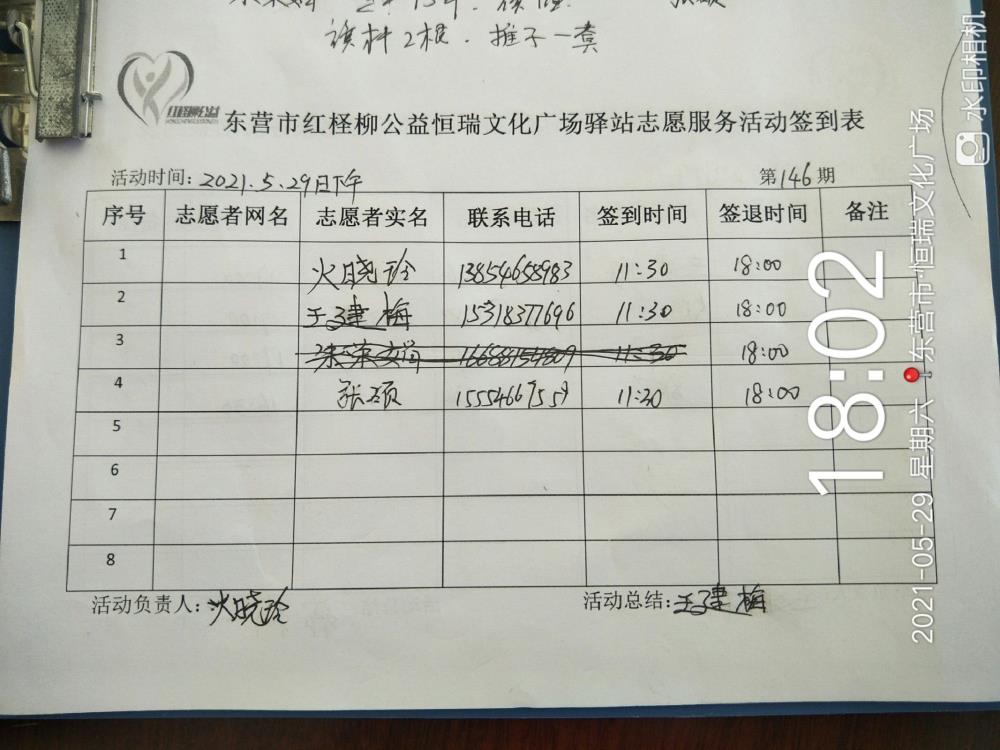 红柽柳公益
东营市红柽柳公益恒瑞文化广场驿站志愿服务活动签到表
活动时间: 2021.5.29日下午 第146期
序号 志愿者网名 志愿者实名 联系电话 签到时间 签退时间 备注
1 火晓玲 13854658983 11:30 18:00
2 王建梅 15318377696 11:30 18:00
3 11:30 18:00
4 张硕 11:30 18:00
5
6
7
8
活动负责人: 火晓玲 活动总结: 王建梅
水印相机
18:02
东营市·恒瑞文化广场
2021-05-29 星期六